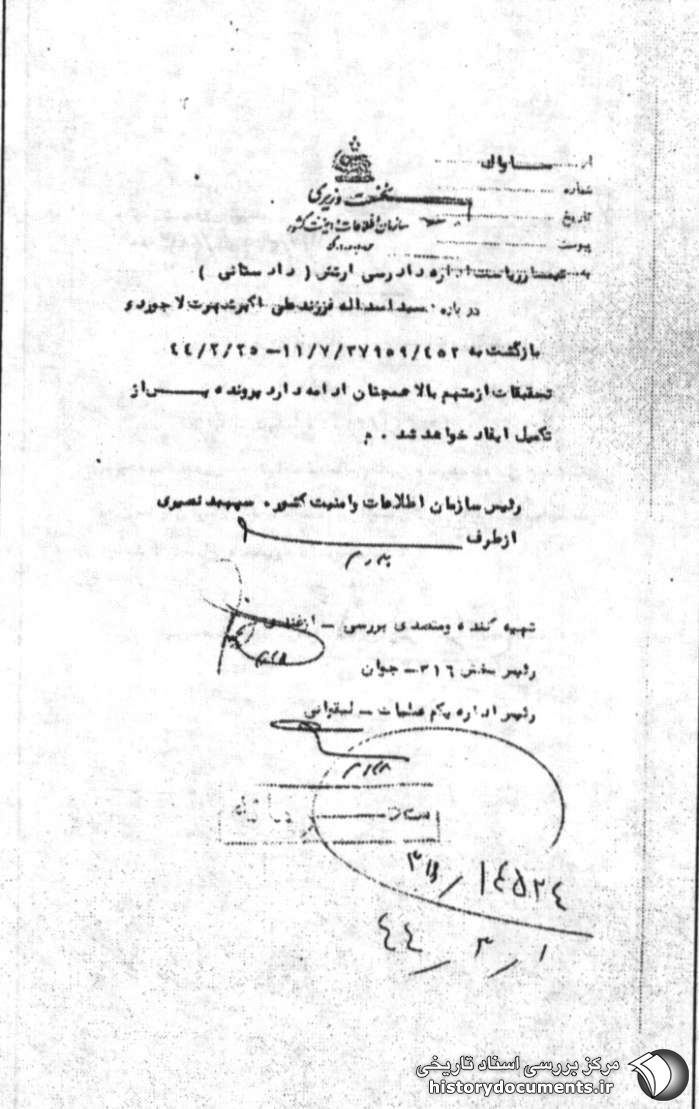 از ساواک
نخست وزیری
شماره
سازمان اطلاعات و امنیت کشور
تاریخ
پیوست
به تیمسار ریاست اداره دادرسی ارتش ( دادستانی )
درباره سید اسداله فرزند علی اکبر شهرت لاجوردی
بازگشت به ۱۱/۷/۳۷۹۵۹/۴۵۲ - ۴٤/۲/۲۵
تحقیقات از متهم بالا همچنان ادامه دارد پرونده پس از
تکمیل ایفاد خواهد شد . م
رئیس سازمان اطلاعات و امنیت کشور . سپهبد نصیری
از طرف
تهیه کننده و متصدی بررسی - ازغندی
رئیس بخش ۳۱۶ - جوان
رئیس اداره یکم عملیات - ثیقوانی
۱٤۵۲٤ / ۳۱۶
۱ / ۳ / ٤٤
مرکز بررسی اسناد تاریخی
historydocuments.ir